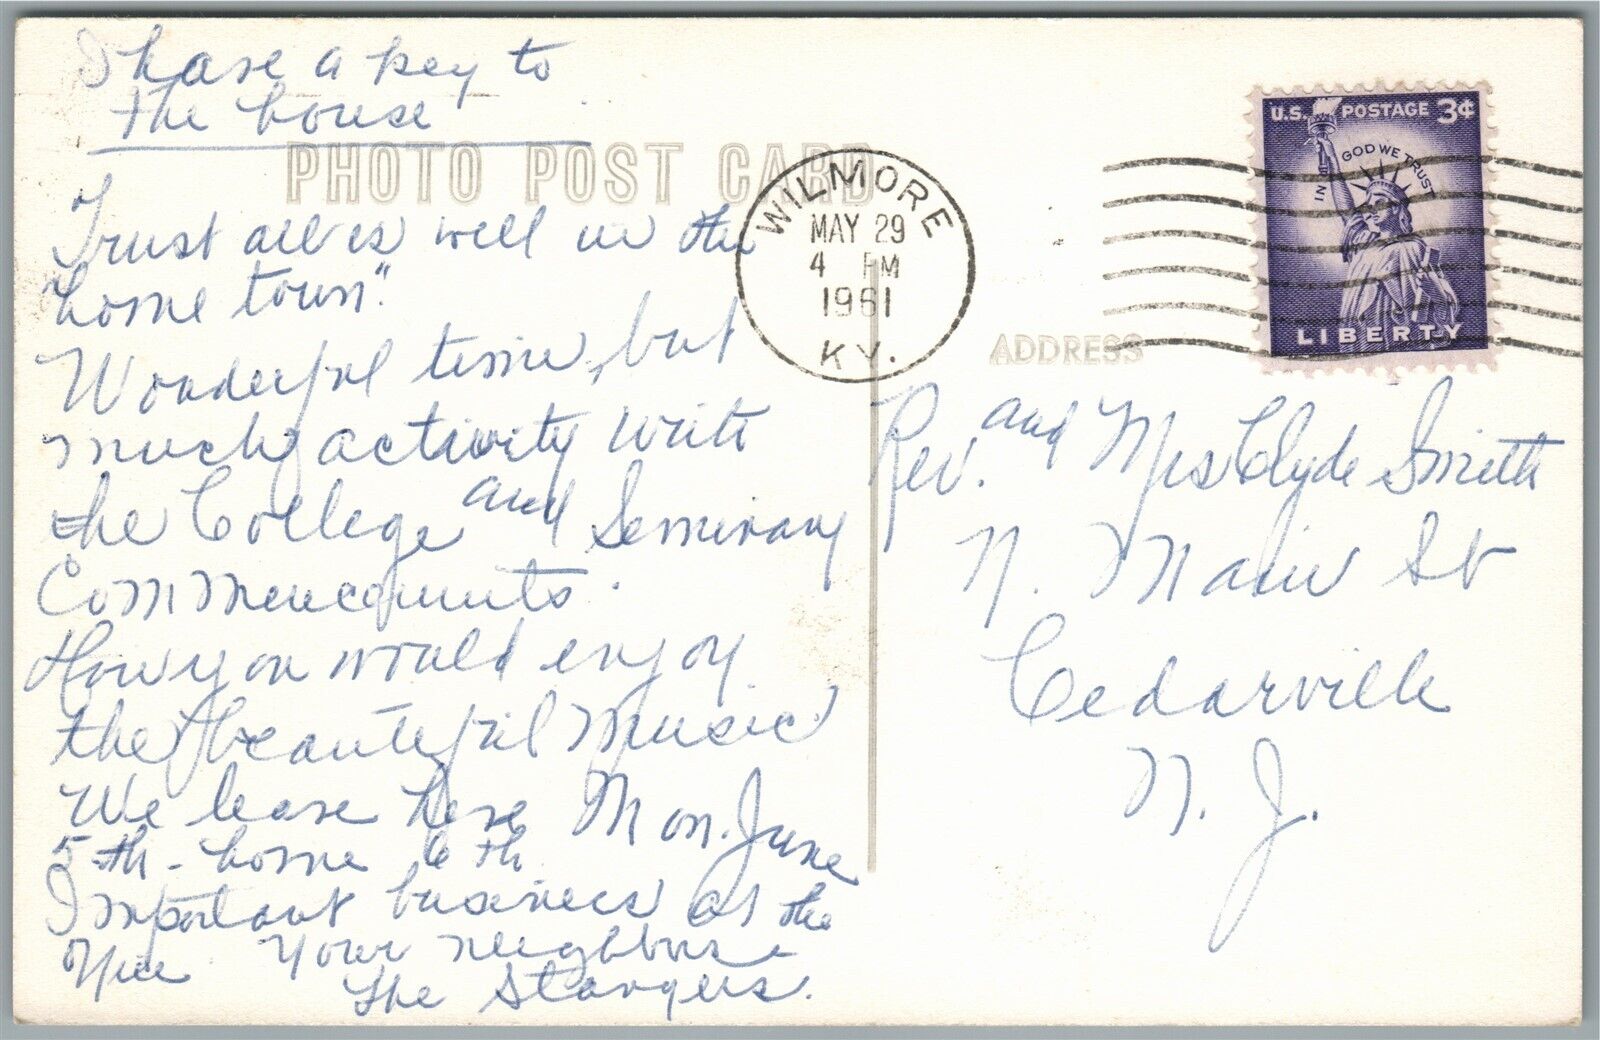 I have a key to
the house
PHOTO POST CARD
Trust all is well in the
"home town".
Wonderful time, but
much activity with
the College and Seminary
Commencements.
How you would enjoy
the beautiful Music
We leave here Mon. June
5th - home 6th
Important business at the
Your neighbors
The Stangers.
WILMORE
MAY 29
4 PM
1961
KY.
U.S. POSTAGE 3¢
IN GOD WE TRUST
LIBERTY
ADDRESS
Rev. and Mrs Clyde Smith
N. Main St
Cedarville
N. J.